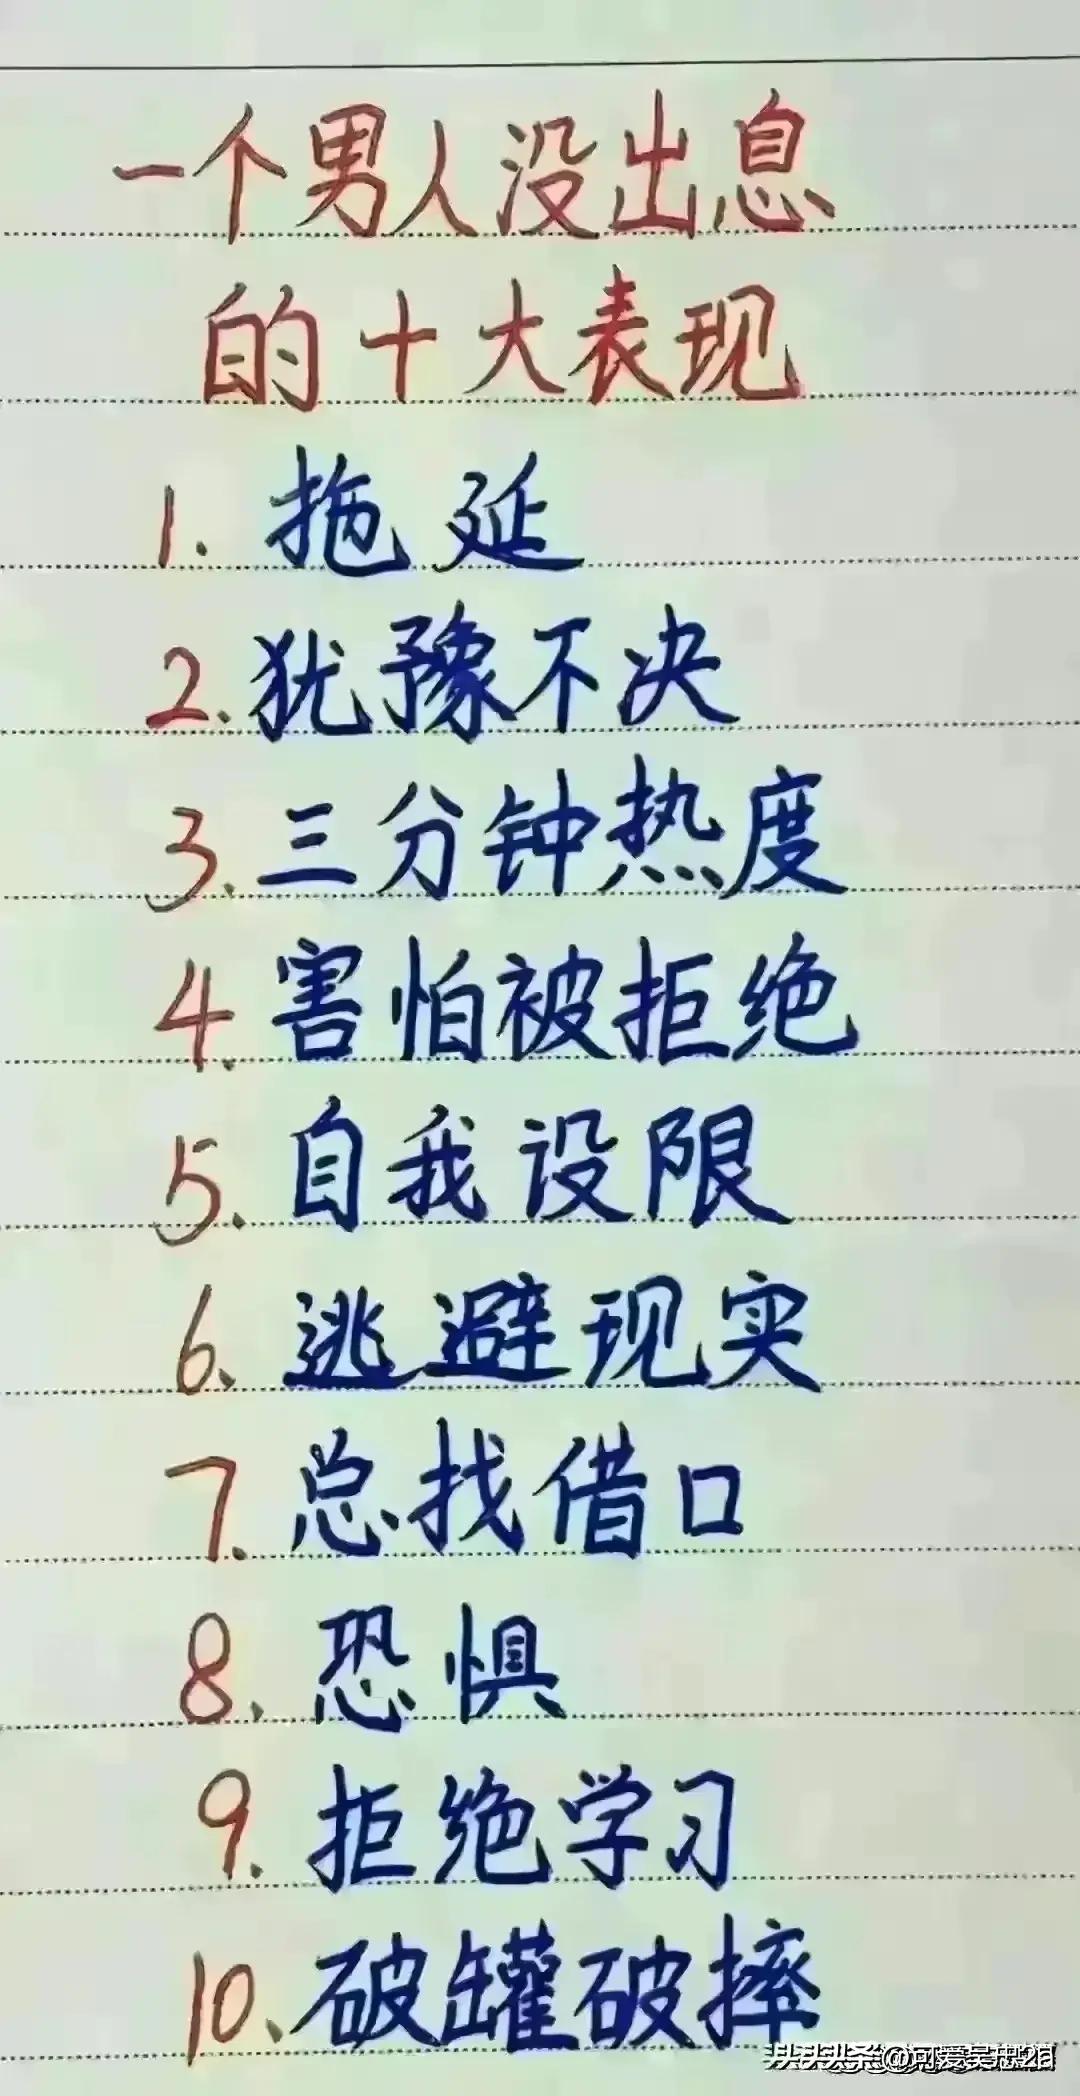 一个男人没出息
的十大表现
1. 拖延
2. 犹豫不决
3. 三分钟热度
4. 害怕被拒绝
5. 自我设限
6. 逃避现实
7. 总找借口
8. 恐惧
9. 拒绝学习
10. 破罐破摔
头条@可爱吴忠2a